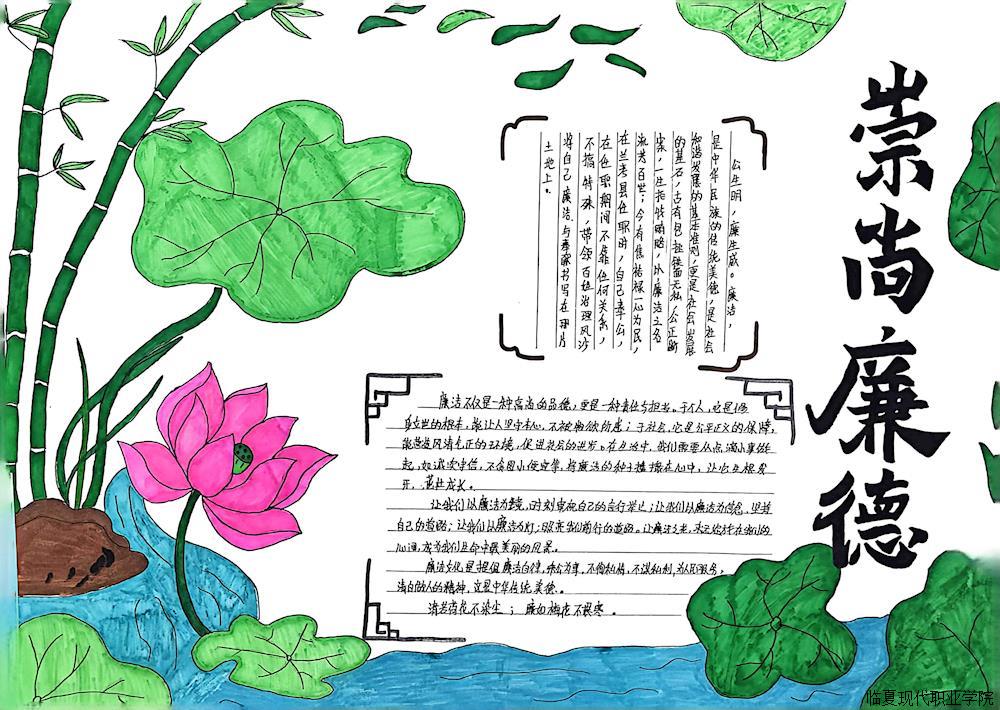 崇尚廉德
公生明，廉生威。廉洁，
是中华民族的传统美德，是社会
和谐发展的基本准则，更是社会发展
的基石，古有包拯铁面无私，公正断
案，一生拒收贿赂，以廉洁之名
流芳百世；今有焦裕禄一心为民，
在兰考县任职时，自己奉公，
在任职期间不靠任何关系，
不搞特殊，带领百姓治理风沙
将自己廉洁与奉献书写在那片
土地上。
廉洁不仅是一种高尚的品德，更是一种责任与担当。于个人，它是修
身立世的根本，能让人坚守本心，不被物欲所惑；于社会，它是公平正义的保障，
能营造风清气正的环境，促进社会的进步。在生活中，我们需要从点滴小事做
起，如诚实守信，不贪图小便宜等，将廉洁的种子播撒在心中，让它生根发
芽、茁壮成长。
让我们以廉洁为镜，时刻审视自己的言行举止；让我们以廉洁为信念，坚持
自己的道路；让我们以廉洁为灯，照亮我们前行的道路。让廉洁之光，永远绽放在我们的
心间，成为我们生命中最美丽的风景。
廉洁文化是提倡廉洁自律，不徇私情，不谋私利，为人民服务，
清白做人的精神，这是中华传统美德。
清若荷花不染尘；廉如梅花不惧寒。
临夏现代职业学院